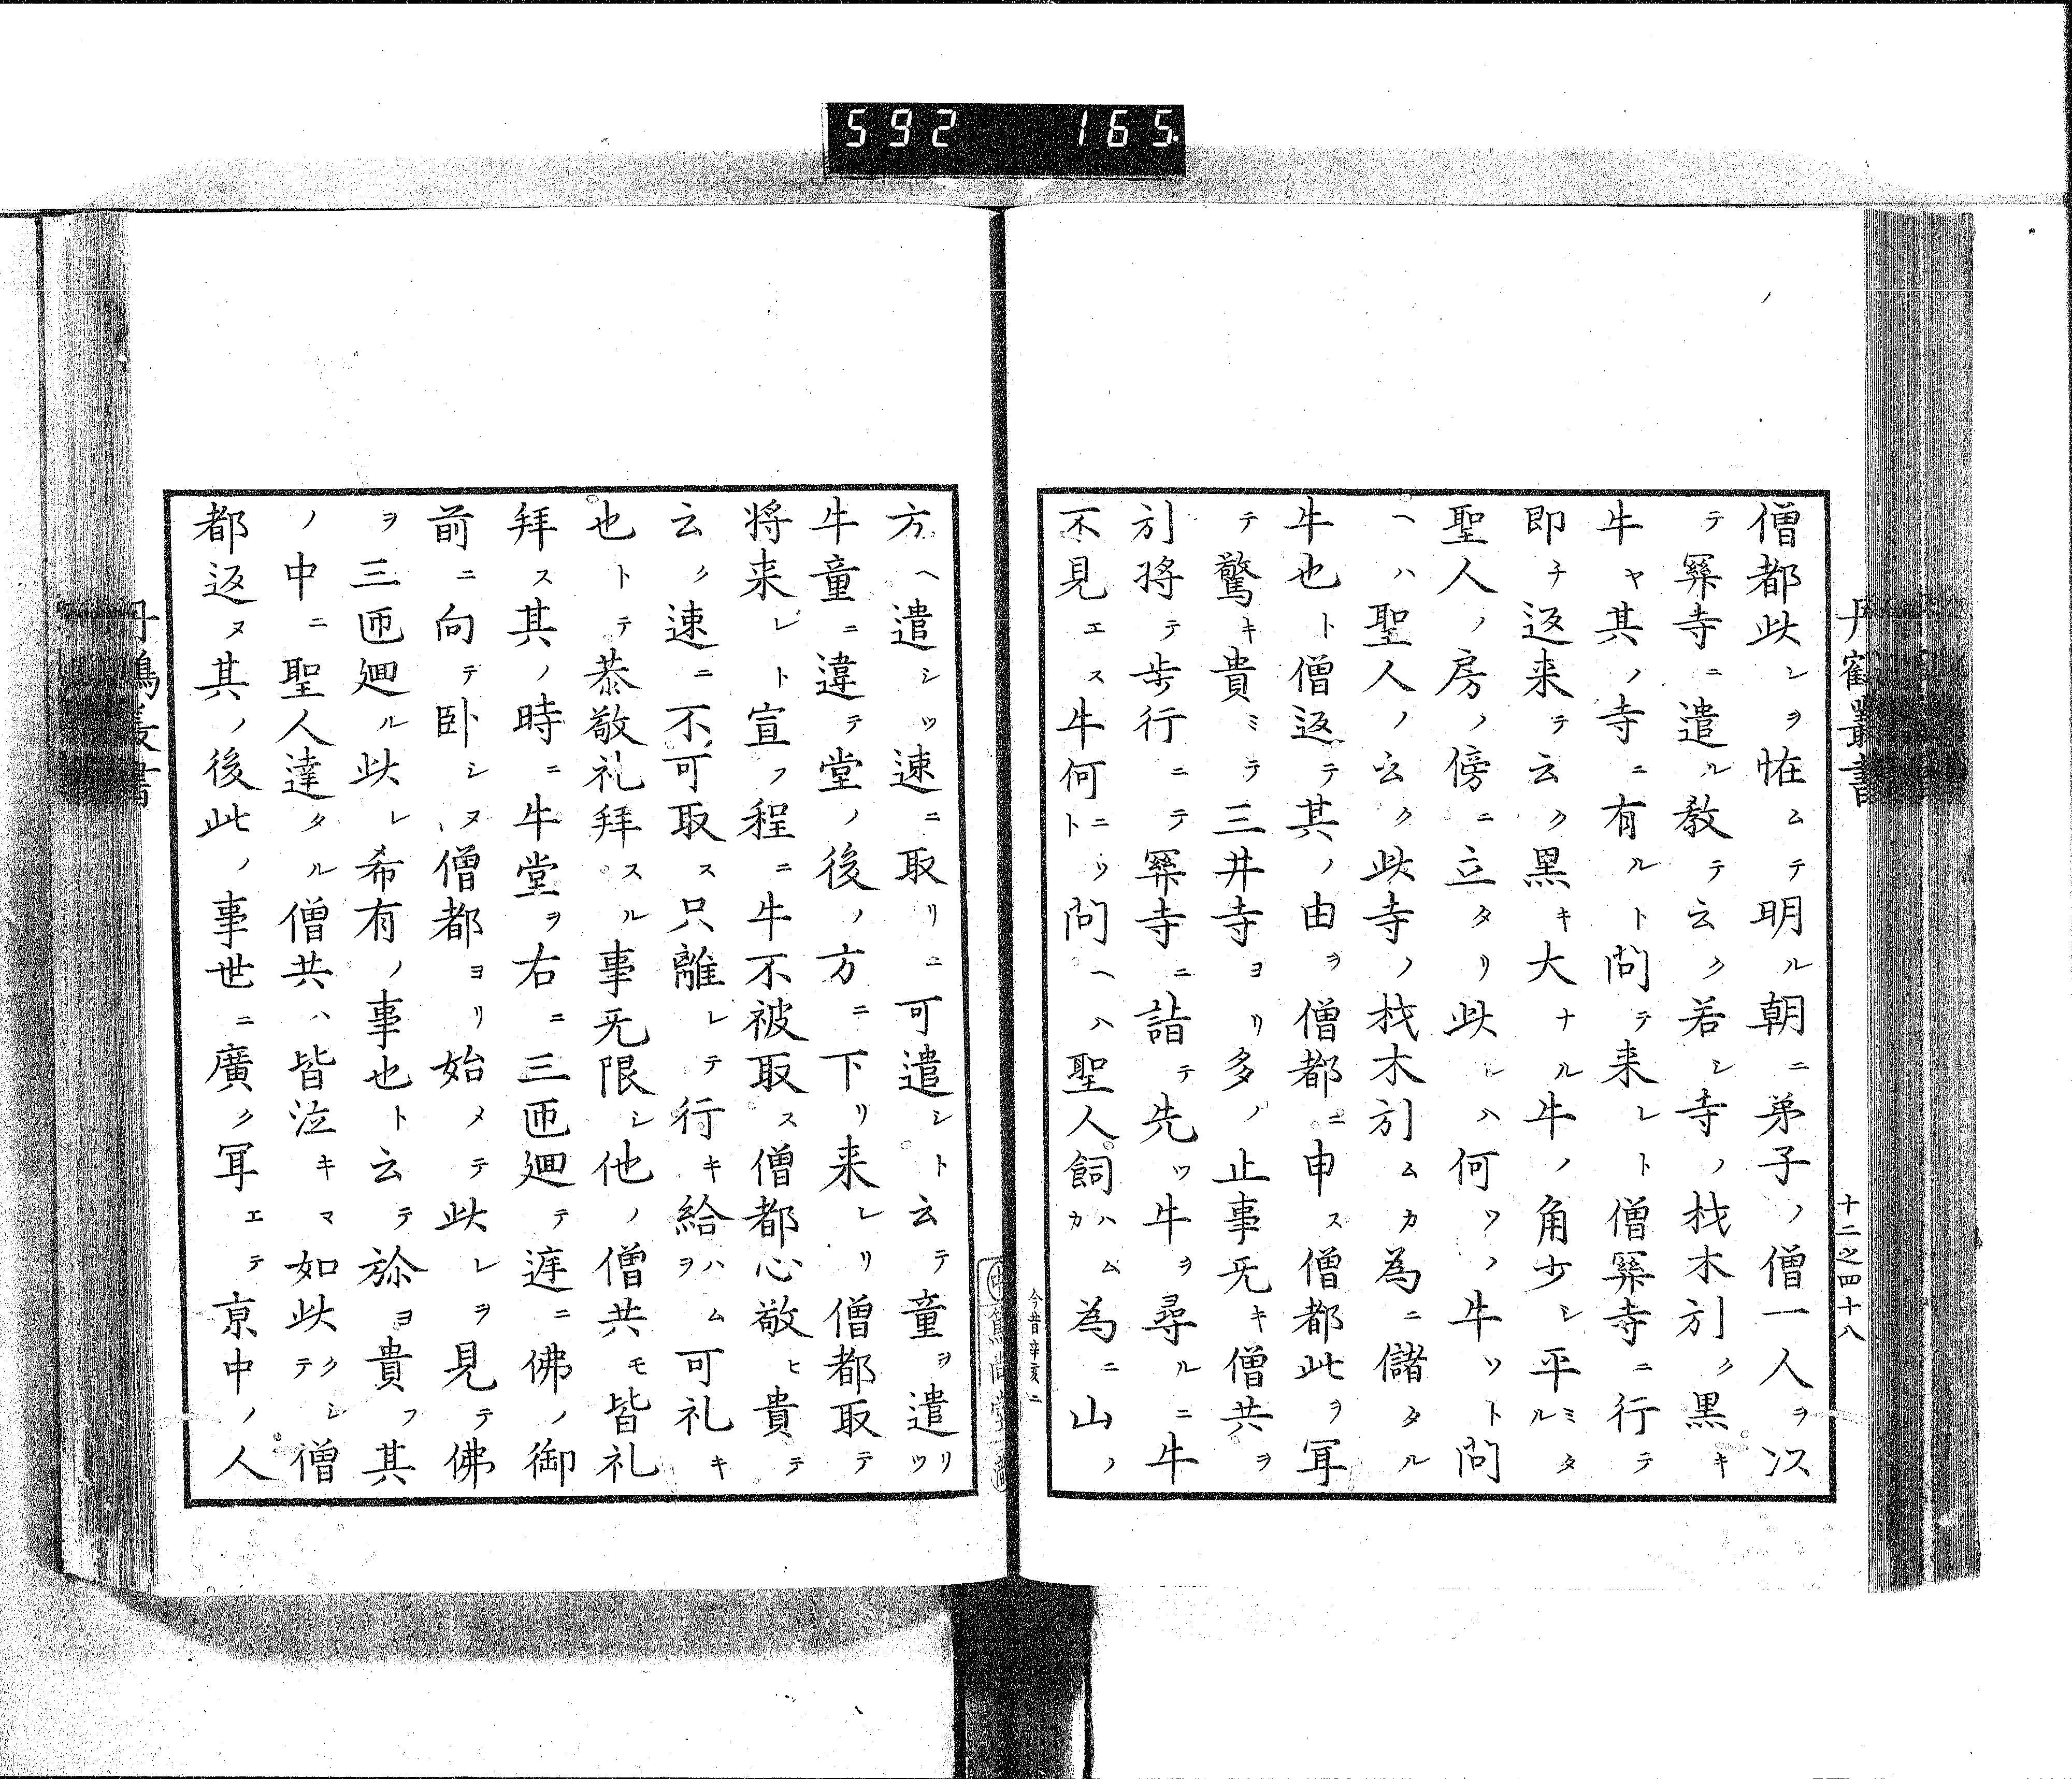 592 165
丹鶴叢書
十二之四十八
僧都此レヲ恠ムテ明ル朝ニ弟子ノ僧一人ヲ以
テ𨵿寺ニ遣ル教テ云ク若シ寺ノ材木引ク黒キ
牛ヤ其ノ寺ニ有ルト問テ来レト僧𨵿寺ニ行テ
即チ返来テ云ク黒キ大ナル牛ノ角少シ平ミタル
聖人ノ房ノ傍ニ立タリ此レハ何ツノ牛ソト問
ヘハ聖人ノ云ク此寺ノ材木引ムカ為ニ儲タル
牛也ト僧返テ其ノ由ヲ僧都ニ申ス僧都此ヲ耳
テ驚キ貴ミテ三井寺ヨリ多ノ止事无キ僧共ヲ
引将テ歩行ニテ𨵿寺ニ詣テ先ツ牛ヲ尋ルニ牛
不見エス牛何ニトソ問ヘハ聖人飼ハムカ為ニ山ノ
今昔辛亥二
方ヘ遣シツ速ニ取リニ可遣シト云テ童ヲ遣リツ
牛童ニ違テ堂ノ後ノ方ニ下リ来レリ僧都取テ
将来レト宣フ程ニ牛不被取ス僧都心敬ヒ貴テ
云ク速ニ不可取ス只離レテ行キ給ハムヲ可礼キ
也トテ恭敬礼拜スル事无限シ他ノ僧共モ皆礼
拜ス其ノ時ニ牛堂ヲ右ニ三匝廻テ庭ニ佛ノ御
前ニ向テ卧シヌ僧都ヨリ始メテ此レヲ見テ佛
ヲ三匝廻ル此レ希有ノ事也ト云テ弥ヨ貴フ其
ノ中ニ聖人達タル僧共ハ皆泣キマ如此クシテ僧
都返ヌ其ノ後此ノ事世ニ廣ク耳エテ京中ノ人